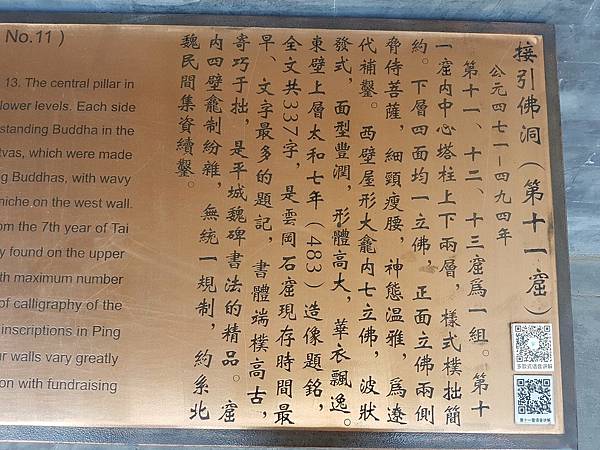 接引佛洞（第十一窟）
公元四七一－四九四年
第十一、十二、十三窟爲一組。第十
一窟内中心塔柱上下兩層，樣式樸拙簡
約。下層四面均一立佛，正面立佛兩側
脅侍菩薩，細頸瘦腰，神態温雅，爲遼
代補鑿。西壁屋形大龕内七立佛，波狀
發式，面型豐潤，形體高大，華衣飄逸。
東壁上層太和七年（483）造像題銘，
全文共337字，是雲岡石窟現存時間最
早、文字最多的題記，書體端樸高古，
寄巧于拙，是平城魏碑書法的精品。窟
内四壁龕制紛雜，無統一規制，約系北
魏民間集資續鑿。
No.11 )
13. The central pillar in
lower levels. Each side
standing Buddha in the
tvas, which were made
g Buddhas, with wavy
niche on the west wall.
om the 7th year of Tai
y found on the upper
th maximum number
of calligraphy of the
inscriptions in Ping
ur walls vary greatly
on with fundraising